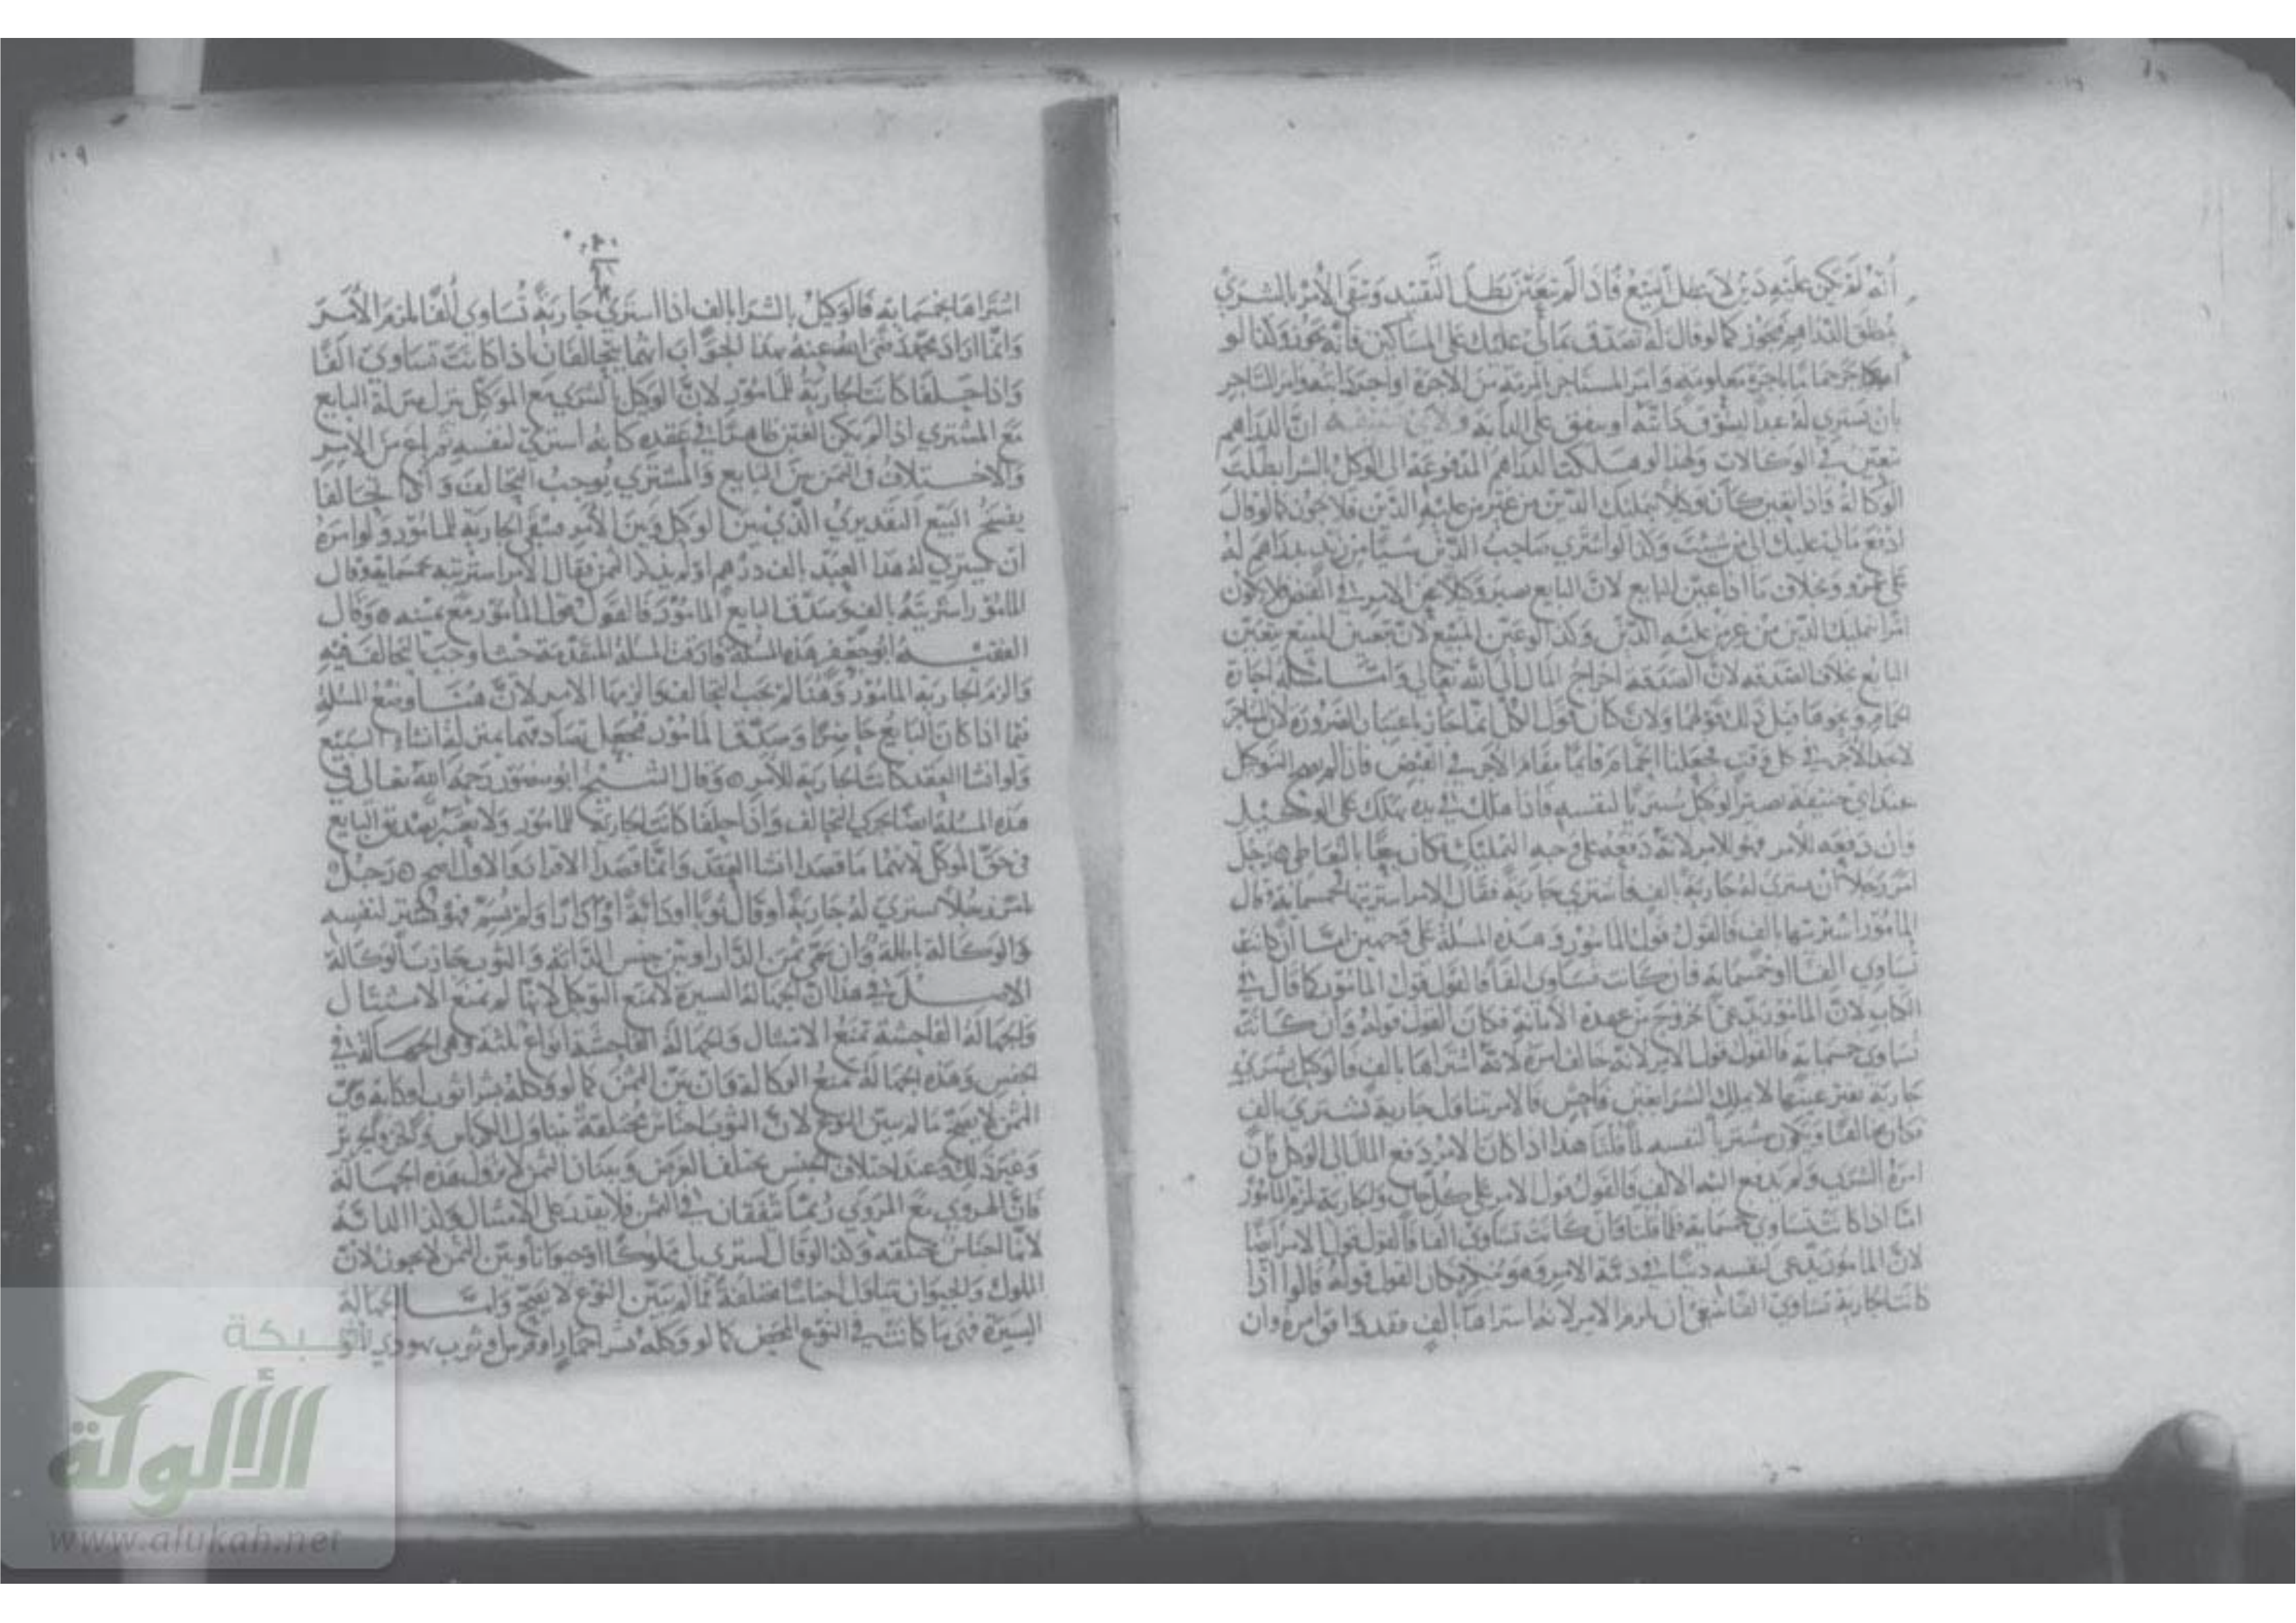 أنه لو لم يكن عليه دين لا يبطل البيع فاذا لم يتعين بطل التقييد وبقي الأمر بالشري
بمطلق الدراهم فيجوز كما لو قال له تصدق بمالي عليك على المساكين فانه يجوز وكذا لو
آجر حماما باجرة معلومة وأمر المستاجر بالمرمة من الاجرة او آجر دابته وأمر المستاجر
بان يشتري له عبدا لسوق دابته أو ينفق على الدابة ولابي حنيفة ان الدراهم
تتعين في الوكالات ولهذا لو هلكت الدراهم المدفوعة الى الوكيل بالشرا بطلت
الوكالة فاذا تعين كان وكيلا بتمليك الدين من غير من عليه الدين فلا يجوز كما لو قال
ادفع مالي عليك الى من شيت وكذا لو اشترى صاحب الدين شيا من زيد بدراهم له
على عمرو وبخلاف ما اذا عين البايع لان البايع يصير وكيلا عن الامر في القبض فلا يكون
امرا بتمليك الدين من غير من عليه الدين وكذا لو عين المبيع لان بتعيين المبيع يتعين
البايع بخلاف الصدقة لان الصدقة اخراج المال الى الله تعالى وأما مسئلة اجارة
الحمام ونحوها قيل ذلك قولهما ولان كان قول الكل انما جاز باعتبار الضرورة لان المستاجر
لا يجد الآجر في كل وقت فجعلنا الحمام قائما مقام الآجر في القبض فان لم يصح التوكيل
عند ابي حنيفة يصير الوكيل مشتريا لنفسه فاذا هلك في يده يهلك على الوكيل
وان دفعه للامر فهو للامر لانه دفعه على وجه التمليك فكان بيعا بالتعاطي رجل
امر رجلا أن يشتري له جارية بالف فاشترى جارية فقال الامر اشتريتها بخمسماية وقال
المامور اشتريتها بالف فالقول قول المامور وهذه المسئلة على وجهين اما ان كانت
تساوي الفا او خمسماية فان كانت تساوي الفا فالقول قول المامور كما قال في
الكتاب لان المامور يدعي الخروج عن عهدة الأمانة فكان القول قوله وان كانت
تساوي خمسماية فالقول قول الامر لانه خالف امره لانه اشتراها بالف فالوكيل بشري
جارية بغير عينها لا يملك الشرا بغبن فاحش فالامر يتناول جارية تشترى بالف
فكان مخالفا ويكون مشتريا لنفسه لما قلنا هذا اذا كان الامر دفع المال الى الوكيل فان
امره بالشري ولم يدفع اليه الالف فالقول قول الامر على كل حال والجارية تلزم المامور
اما اذا كانت تساوي خمسماية فلما قلنا فان كانت تساوي الفا فالقول قول الامر ايضا
لان المامور يدعي لنفسه دينا في ذمة الامر وهو ينكر فكان القول قوله قالوا اذا
كانت الجارية تساوي الفا ينبغي ان يلزم الامر لانه اشتراها بالف فقد وافق امره وان
١٠٩
اشتراها بخمسماية فالوكيل بالشرا بالف اذا اشترى جارية تساوي ألفا لزم الآمر
وانما اراد محمد رضي الله عنه بهذا الجواب انهما يتحالفان اذا كانت تساوي الفا
واذا حلفا كانت الجارية للمامور لان الوكيل بالشري مع الموكل ينزل منزلة البايع
مع المشتري اذا لم يكن الغبن ظاهرا في عقده كانه اشترى لنفسه ثم باع من الامر
والاختلاف في الثمن بين البايع والمشتري يوجب التحالف واذا تحالفا
يفسخ البيع التقديري الذي بين الوكيل وبين الآمر فتبقى الجارية للمامور ولو امره
أن يشتري له هذا العبد بالف درهم او لم يذكر الثمن فقال الامر اشتريته بخمسماية وقال
المامور اشتريته بالف وصدق البايع المامور فالقول قول المامور مع يمينه وقال
الفقيه أبو جعفر هذه المسئلة فارقت المسئلة المتقدمة حيث اوجبنا التحالف فيه
والزم الجارية المامور وهنا لم يجب التحالف والزمها الامر لان هنا وضع المسئلة
فيما اذا كان البايع حاضرا وصدق المامور فجعل تصادقهما بمنزلة انشاء البيع
ولو انشا العقد كانت الجارية للآمر وقال الشيخ ابو منصور رحمه الله تعالى في
هذه المسئلة ايضا يجري التحالف واذا حلفا كانت الجارية للمامور ولا يعتبر تصديق البايع
في حق الموكل لانهما ما قصدا انشا العقد وانما قصدا الاقرار والاول اصح رجل
امر رجلا يشتري له جارية أو قال ثوبا او دابة أو دارا ولم يسم فهو مشتر لنفسه
والوكالة باطلة وان سمى ثمن الدار او بين جنس الدابة والثوب جازت الوكالة
الاصل في هذا ان الجهالة اليسيرة لا تمنع التوكيل لانها لم تمنع الامتثال
والجهالة الفاحشة تمنع الامتثال والجهالة الفاحشة انواع ثلثة وهي الجهالة في
الجنس وهذه الجهالة تمنع الوكالة فان بين الثمن كما لو وكله بشرا ثوب او دابة وبين
الثمن لا يصح ما لم يبين النوع لان الثوب اجناس مختلفة يتناول الكرباس والخز والحرير
وغير ذلك وعند اختلاف الجنس يختلف الغرض وببيان الثمن لا تزول هذه الجهالة
فان الهروي مع المروي ربما يتفقان في الثمن فلا يقدر على الامتثال وكذا الدابة
لانها اجناس مختلفة وكذا لو قال اشتري لي مملوكا او حيوانا وبين الثمن لا يجوز لان
المملوك والحيوان يتناول اجناسا مختلفة فما لم يبين النوع لا يصح واما الجهالة
اليسيرة فهي ما كانت في النوع المحض كما لو وكله بشرا حمار او فرس او ثوب يهودي او
شبكة
الألوكة
www.alukah.net